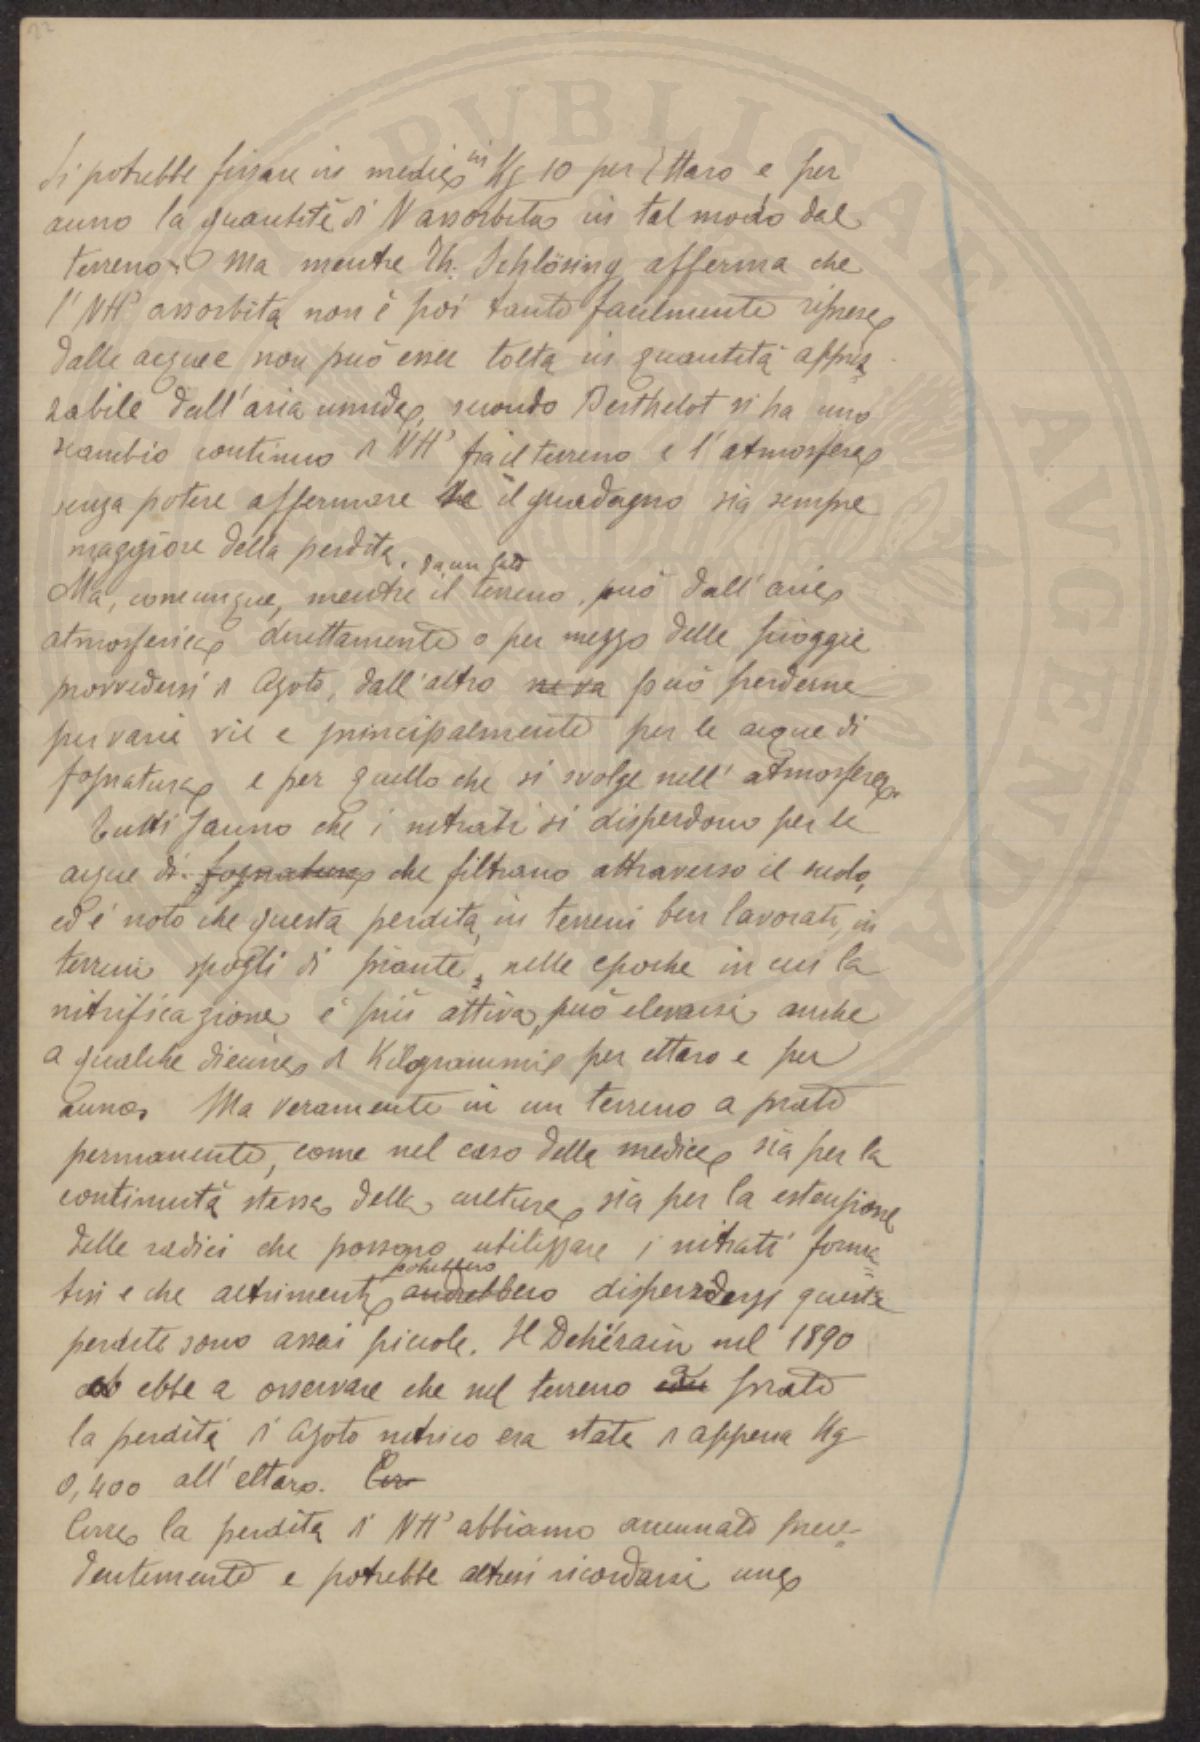 22
si potrebbe fissare in media in Kg 10 per Ettaro e per
anno la quantità di N assorbita in tal modo dal
terreno. Ma mentre Th. Schlösing afferma che
l'NH³ assorbita non è poi tanto facilmente ripresa
dalle acque e non può esser tolta in quantità apprez
zabile dall'aria umida, secondo Berthelot si ha uno
scambio continuo di NH³ fra il terreno e l'atmosfera
senza potere affermare se il guadagno sia sempre
maggiore della perdita.
Ma, comunque, mentre il terreno da un lato può dall'aria
atmosferica direttamente o per mezzo delle pioggie
provvedersi di Azoto, dall'altro ne va può perderne
per varie vie e principalmente per le acque di
fognatura e per quello che si svolge nell'atmosfera.
Tutti sanno che i nitrati si disperdono per le
acque di fognatura che filtrano attraverso il suolo,
ed è noto che questa perdita, in terreni ben lavorati, in
terreni spogli di piante, nelle epoche in cui la
nitrificazione è più attiva, può elevarsi anche
a qualche diecina di Kilogrammi per ettaro e per
anno. Ma veramente in un terreno a prato
permanente, come nel caso della medica sia per la
continuità stessa della cultura, sia per la estensione
delle radici che possono utilizzare i nitrati forma
tisi e che altrimenti andrebbero potrebbero disperdersi queste
perdite sono assai piccole. Il Dehérain nel 1890
ebbe a osservare che nel terreno a prato
la perdita di Azoto nitrico era stata di appena Kg
0,400 all'ettaro. Cir
Circa la perdita di NH³ abbiamo accennato prece=
dentemente e potrebbe altresì ricordarsi una
PUBLICAE AVGENDAE